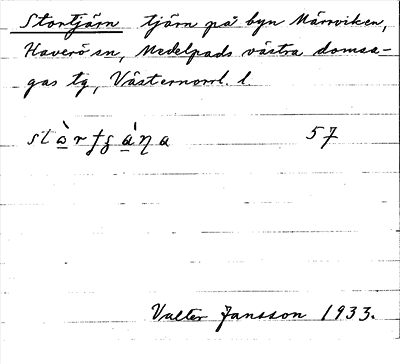 Stortjärn tjärn på byn Märrviken,
Haverö sn, Medelpads västra domsa-
gas tg, Västernorrl. l.
57
Valter Jansson 1933.